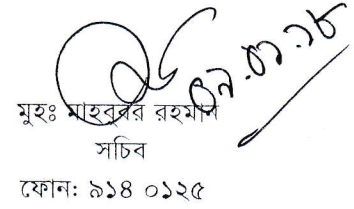 ০৭.০১.১৮
মুহঃ মাহবুবর রহমান
সচিব
ফোন: ৯১৪ ০১২৫